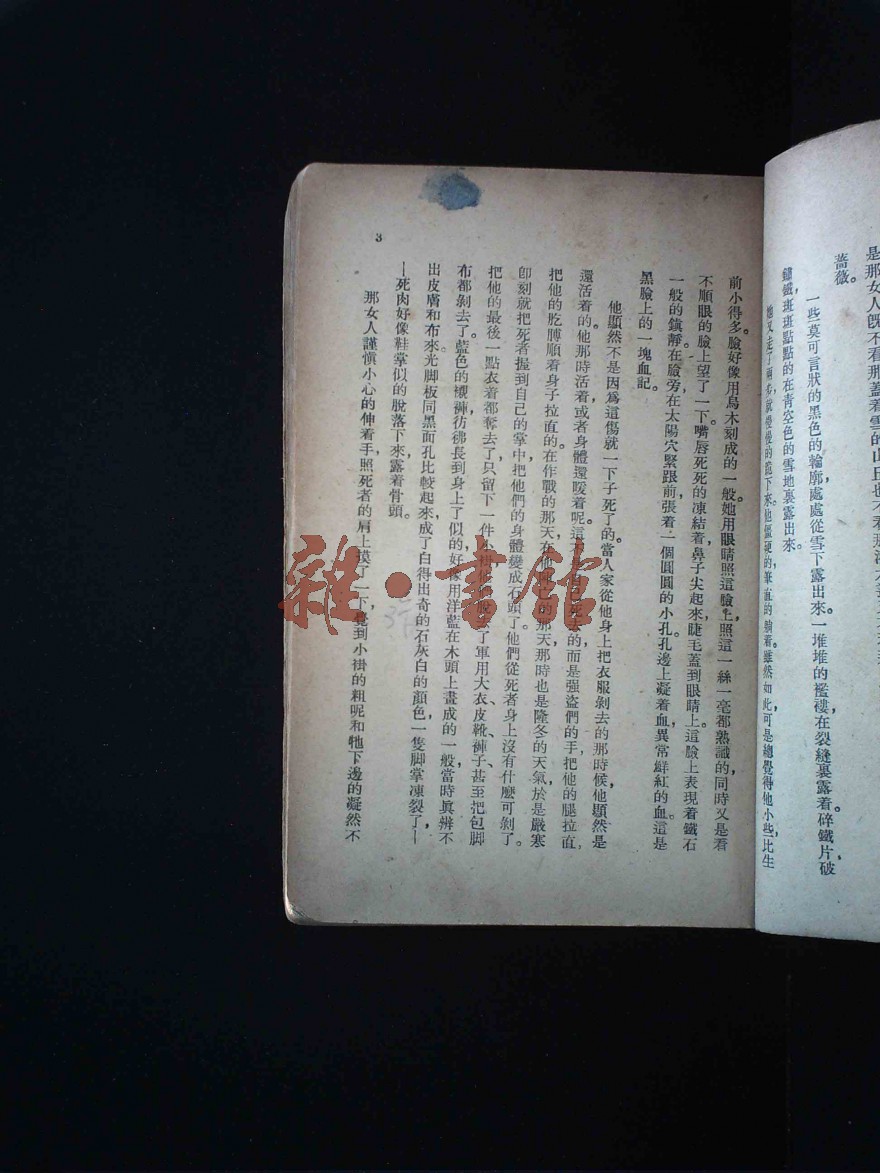 是那女人旣不看那蓋着雪的山丘也不看那
薔薇。
一些莫可言狀的黑色的輪廓處處從雪下露出來。一堆堆的襤褸在裂縫裏露着碎鐵片破
鏽鐵斑斑點點的在靑空色的雪地裏露出來。
她又走了兩步，就慢慢的跪下來。他僵硬的，筆直的躺着。雖然如此，可是總覺得他小些，比生
前小得多。臉好像用烏木刻成的一般。她用眼睛照這臉上，照這一絲一毫都熟識的，同時又是看
不順眼的臉上望了一下。嘴唇死死的凍結着，鼻子尖起來，睫毛蓋到眼睛上。這臉上表現着鐵石
一般的鎭靜。在臉旁在太陽穴緊跟前張着一個圓圓的小孔，孔邊上凝着血，異常鮮紅的血，這是
黑臉上的一塊血記。
他顯然不是因爲這傷就一下子死了的。當人家從他身上把衣服剝去的那時候，他顯然是
還活着的。他那時活着或者身體還暖着呢。這是自己死去的，而是强盜們的手把他的腿拉直，
把他的肐膊順着身子拉直的。在作戰的那天，在他陣亡的那天，那時也是隆冬的天氣。於是嚴寒
卽刻就把死者握到自己的掌中，把他們的身體變成石頭了。他們從死者身上沒有什麼可剝了。
把他的最後一點衣着都奪去了，只留下一件小褂。他們脫去了軍用大衣、皮靴、褲子，甚至把包脚
布都剝去了。藍色的襯褲彷彿長到身上了似的，好像用洋藍在木頭上畫成的一般，當時眞辨不
出皮膚和布來。光脚板同黑面孔比較起來，成了白得出奇的石灰白的顏色。一隻脚掌凍裂了—
—死肉好像鞋掌似的脫落下來，露着骨頭。
那女人謹愼小心的伸着手，照死者的肩上摸了一下，覺到小褂的粗呢和牠下邊的凝然不
3
雜·書館